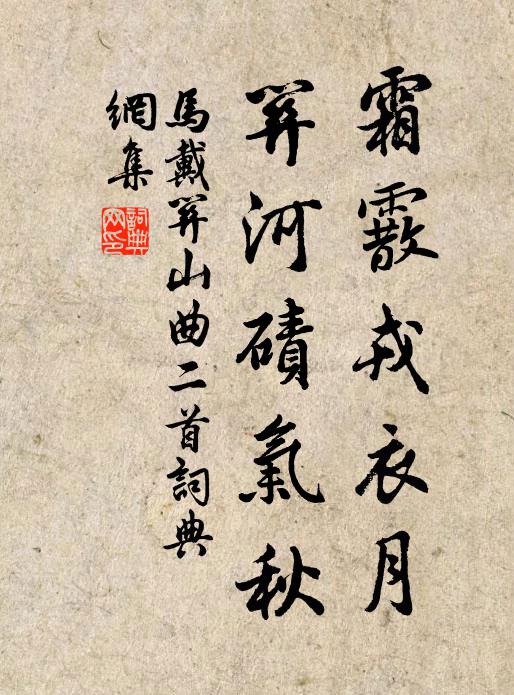 霜霰戎衣月
關河磧氣秋
馬戴關山曲二首詞典
網集
詞典网印